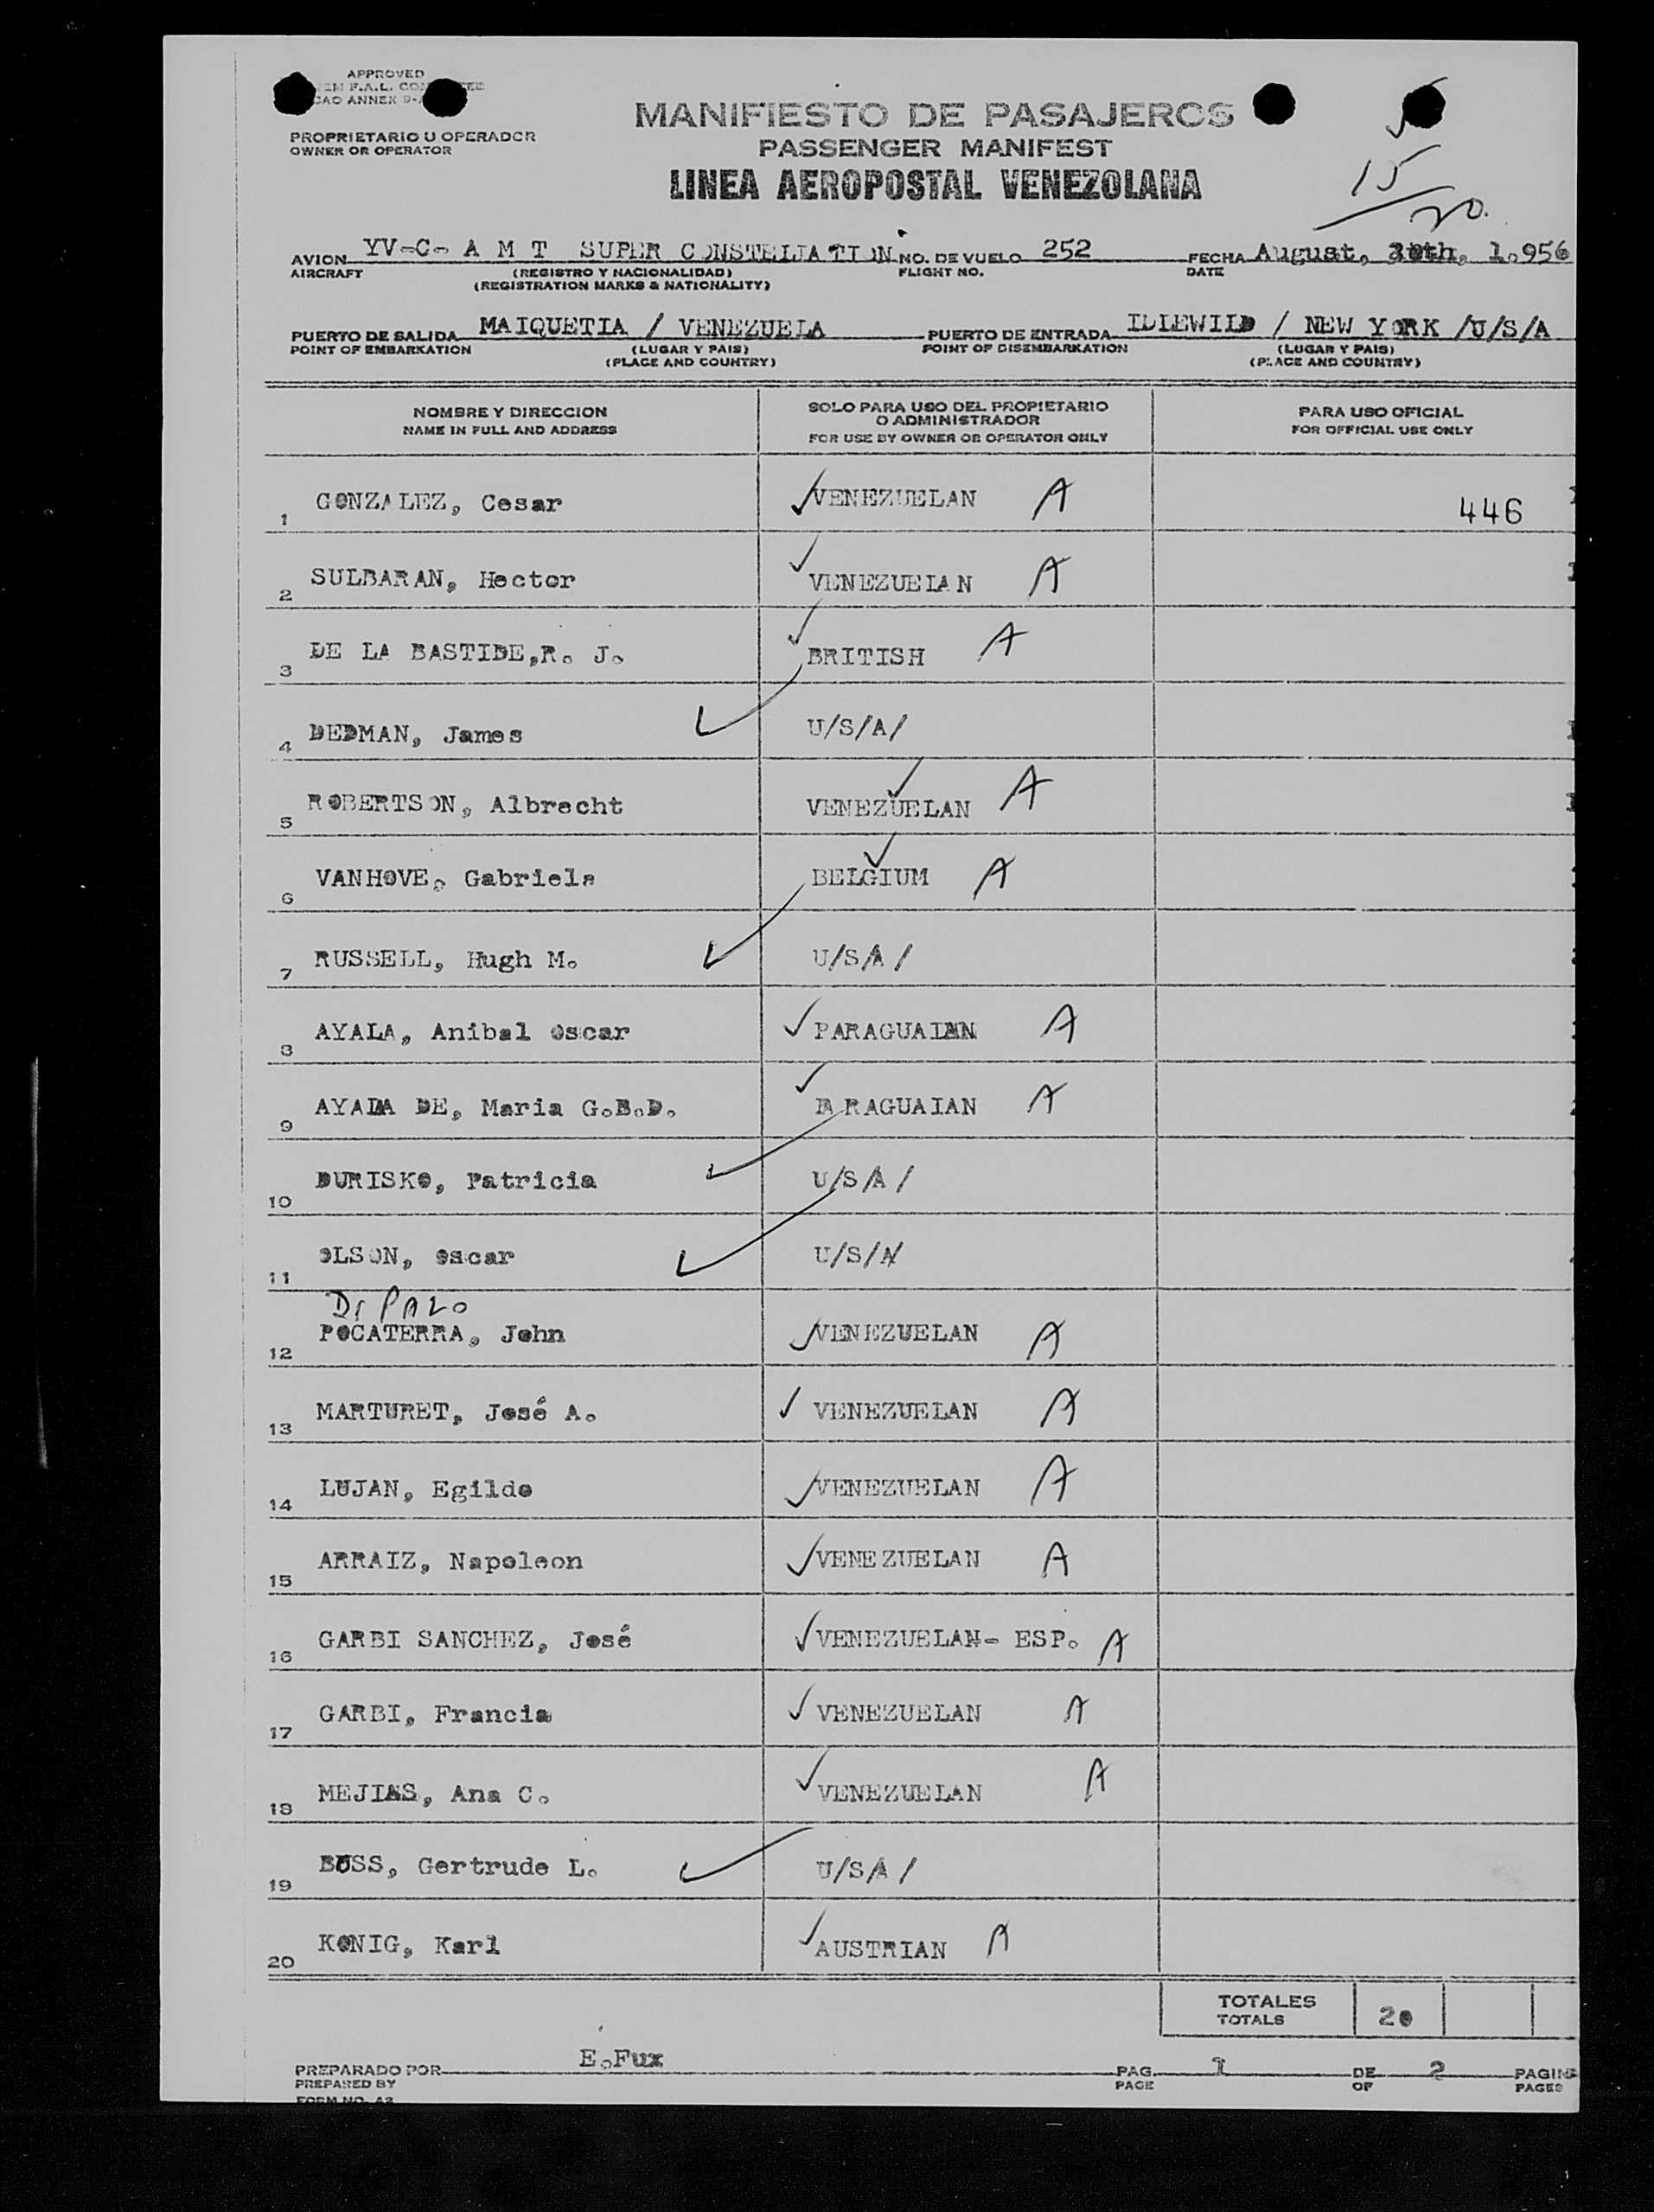 APPROVED
F.A.L.
ANNEX 9-
PROPRIETARIO U OPERADOR
OWNER OR OPERATOR
MANIFIESTO DE PASAJEROS
PASSENGER MANIFEST
LINEA AEROPOSTAL VENEZOLANA
5
15
20.
AVION YV-C- A M T SUPER CONSTELLATION NO. DE VUELO 252 FECHA August, 1.956
AIRCRAFT (REGISTRO Y NACIONALIDAD) FLIGHT NO. DATE
(REGISTRATION MARKS & NATIONALITY)
PUERTO DE SALIDA MAIQUETIA / VENEZUELA PUERTO DE ENTRADA IDLEWILD / NEW YORK /U/S/A
POINT OF EMBARKATION (LUGAR Y PAIS) POINT OF DISEMBARKATION (LUGAR Y PAIS)
(PLACE AND COUNTRY) (PLACE AND COUNTRY)
NOMBRE Y DIRECCION SOLO PARA USO DEL PROPIETARIO PARA USO OFICIAL
O ADMINISTRADOR
NAME IN FULL AND ADDRESS FOR USE BY OWNER OR OPERATOR ONLY FOR OFFICIAL USE ONLY
1 GONZALEZ, Cesar VENEZUELAN A 446
2 SULBARAN, Hector VENEZUELAN A
3 DE LA BASTIDE,R. J. BRITISH A
4 DEDMAN, James U/S/A/
5 ROBERTSON, Albrecht VENEZUELAN A
6 VANHOVE, Gabriela BELGIUM A
7 RUSSELL, Hugh M. U/S/A /
8 AYALA, Anibal Oscar PARAGUAIAN A
9 AYALA DE, Maria G.B.D. PARAGUAIAN A
10 DURISKO, Patricia U/S/A /
11 OLSON, Oscar U/S/A/
Di PALO
12 POCATERRA, John VENEZUELAN A
13 MARTURET, José A. VENEZUELAN A
14 LUJAN, Egildo VENEZUELAN A
15 ARRAIZ, Napoleon VENEZUELAN A
16 GARBI SANCHEZ, José VENEZUELAN- ESP. A
17 GARBI, Francia VENEZUELAN A
18 MEJIAS, Ana C. VENEZUELAN A
19 BUSS, Gertrude L. U/S/A /
20 KONIG, Karl AUSTRIAN A
TOTALES 20
TOTALS
PREPARADO POR E.Fux PAG. 1 DE 2
PREPARED BY PAGE OF PAGES
FORM NO. A2